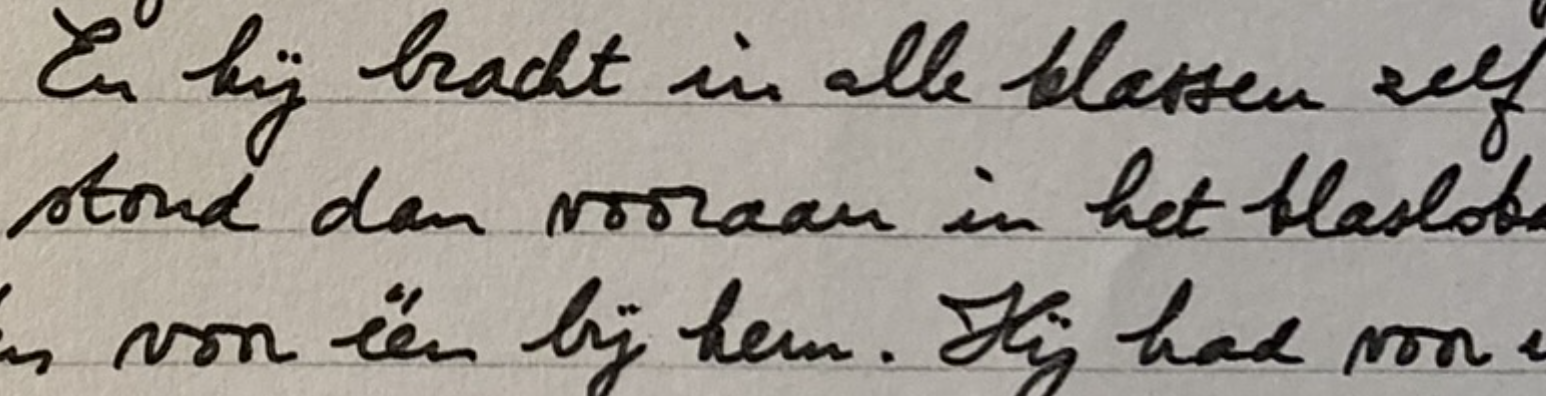 En hij bracht in alle klassen zelf
stond dan vooraan in het klaslok
voor één bij hem. Hij had voor